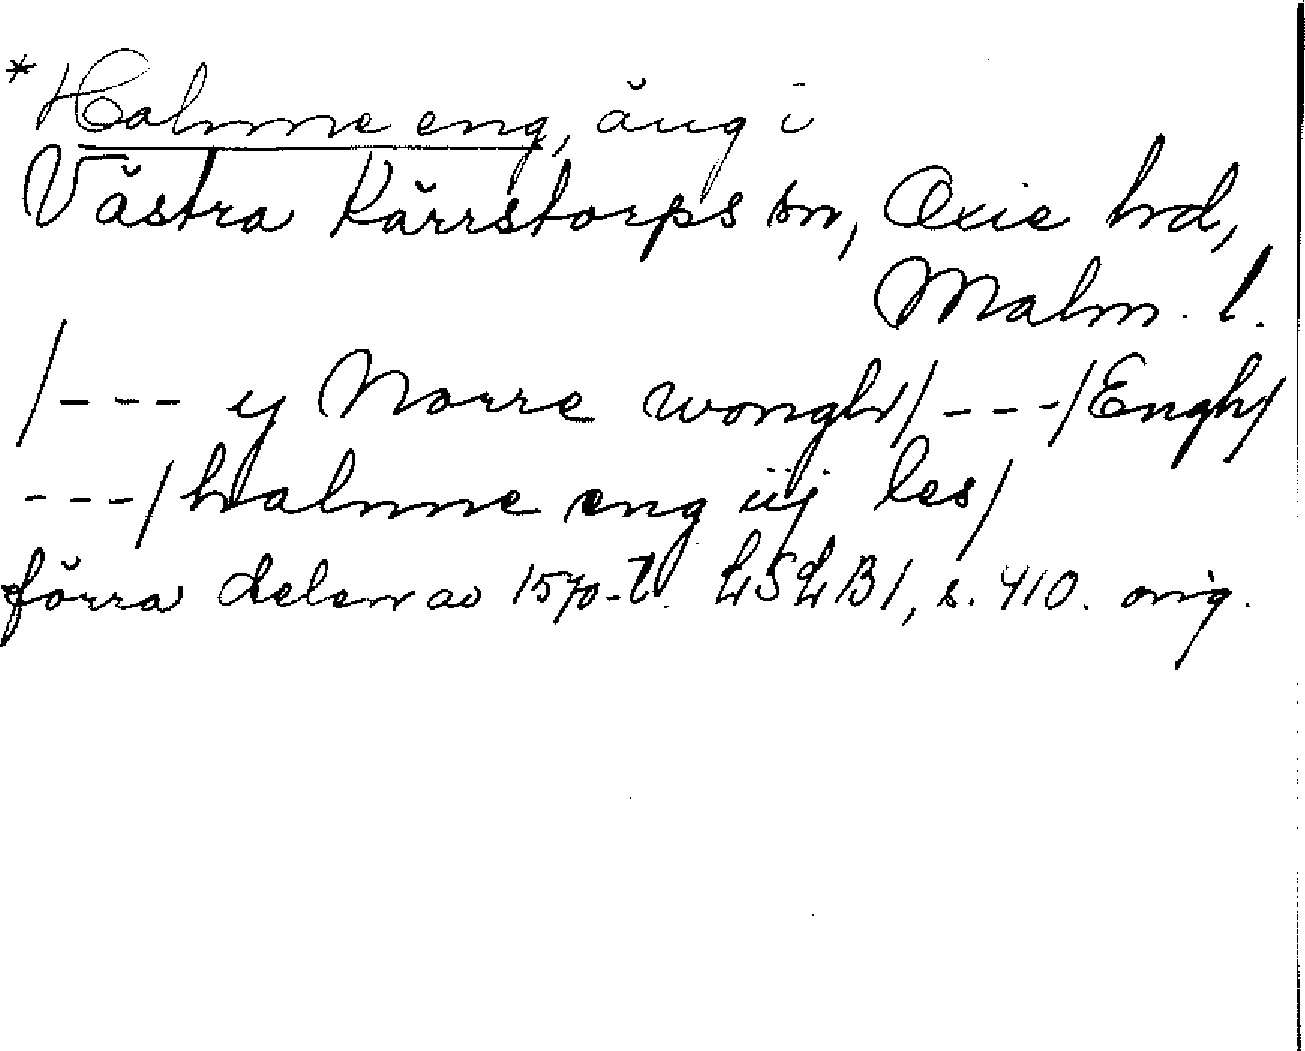 *Halmme eng, äng i
Västra Kärrstorps sn, Oxie hd,
Malm. l.
/--- y Norre wongh/ ---/Engh/
---/halmme eng iij les/
förra delen av 1570-t. LSLB 1, s. 410. orig.